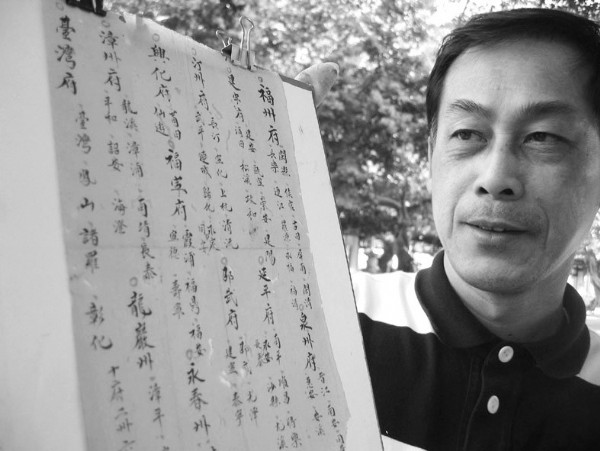 福州府 閩縣 侯官 古田 屏南 閩清 長樂 連江 羅源 永福 福清 泉州府 晉江 南安 同安 惠安 安溪
建寧府 建安 甌寧 崇安 建陽 浦城 松溪 政和 延平府 南平 順昌 將樂 永安 沙縣 尤溪
汀州府 長汀 寧化 上杭 清流 武平 連城 歸化 永定 邵武府 邵武 光澤 建寧 泰寧
興化府 莆田 仙遊 福寧府 霞浦 福鼎 福安 寧德 壽寧 永春州
漳州府 龍溪 漳浦 南靖 長泰 平和 詔安 海澄 龍巖州 漳平
臺灣府 臺灣 鳳山 諸羅 彰化 十府二州